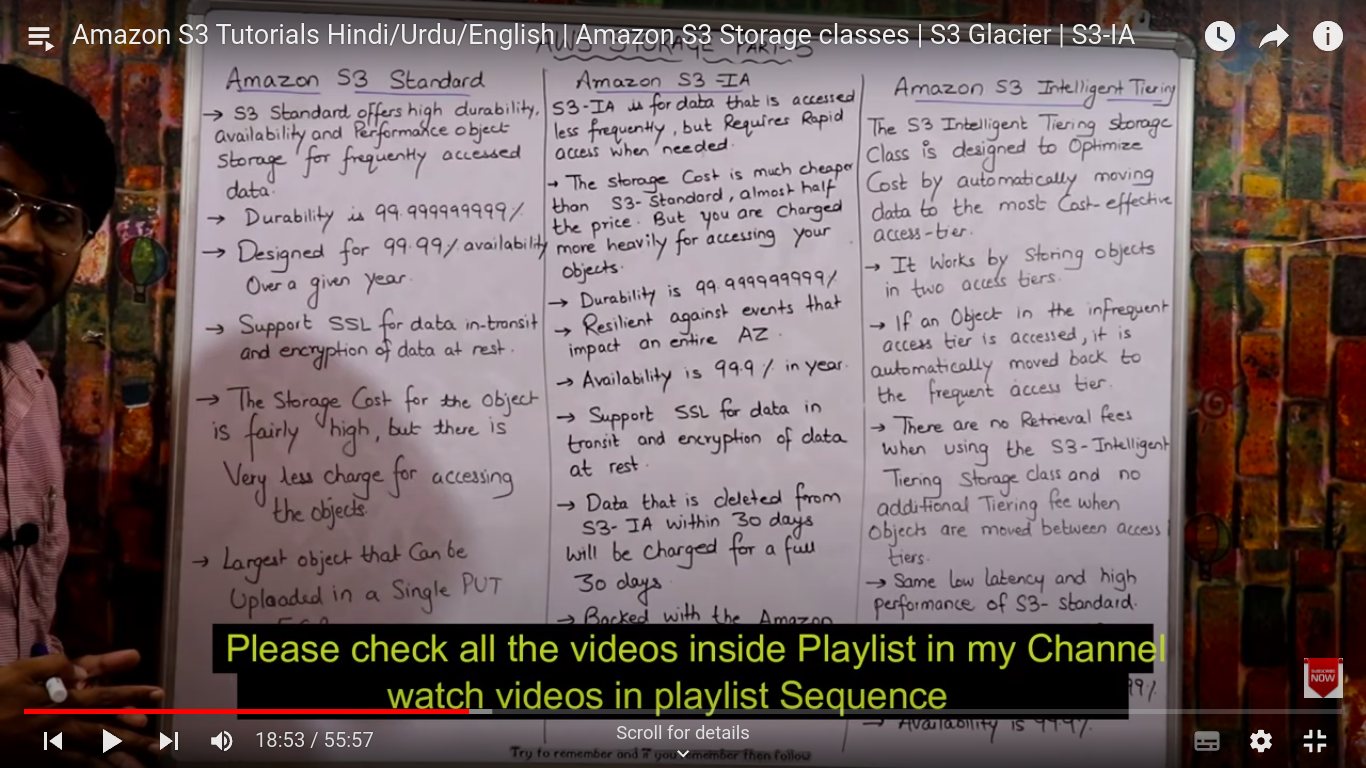 Amazon S3 Tutorials Hindi/Urdu/English | Amazon S3 Storage classes | S3 Glacier | S3-IA
AWS STORAGE PART-3
Amazon S3 Standard
→ S3 Standard offers high durability,
availability and Performance object
Storage for frequently accessed
data.
→ Durability is 99.999999999%
→ Designed for 99.99% availability
Over a given year.
→ Support SSL for data in-transit
and encryption of data at rest.
→ The Storage Cost for the object
is fairly high, but there is
Very less charge for accessing
the objects.
→ Largest object that Can be
Uploaded in a Single PUT
Amazon S3-IA
S3-IA is for data that is accessed
less frequently, but Requires Rapid
access when needed.
→ The storage Cost is much cheaper
than S3-Standard, almost half
the price. But you are charged
more heavily for accessing your
objects.
→ Durability is 99.999999999%
→ Resilient against events that
impact an entire AZ.
→ Availability is 99.9% in year.
→ Support SSL for data in
transit and encryption of data
at rest.
→ Data that is deleted from
S3-IA within 30 days
will be charged for a full
30 days.
→ Backed with the Amazon
Amazon S3 Intelligent Tiering
The S3 Intelligent Tiering storage
Class is designed to Optimize
Cost by automatically moving
data to the most Cost-effective
access-tier.
→ It Works by Storing objects
in two access tiers.
→ If an Object in the infrequent
access tier is accessed, it is
automatically moved back to
the frequent access tier.
→ There are no Retrieval fees
when using the S3-Intelligent
Tiering Storage class and no
additional Tiering fee when
Objects are moved between access
tiers.
→ Same low latency and high
performance of S3-standard.
99%
→ Availability is 99.9%.
Please check all the videos inside Playlist in my Channel
watch videos in playlist Sequence
SUBSCRIBE
NOW
18:53 / 55:57
Scroll for details
Try to remember and if you remember then follow